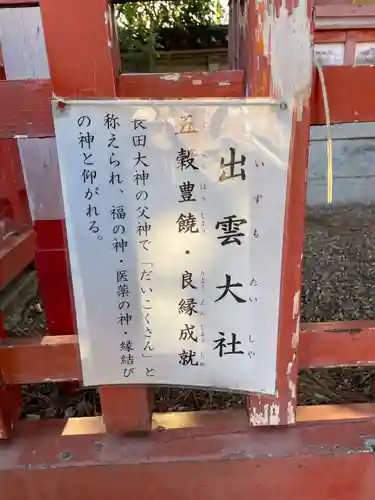 出雲大社
いずもたいしゃ
五穀豊饒・良縁成就
長田大神の父神で「だいこくさん」と
称えられ、福の神・医薬の神・縁結び
の神と仰がれる。